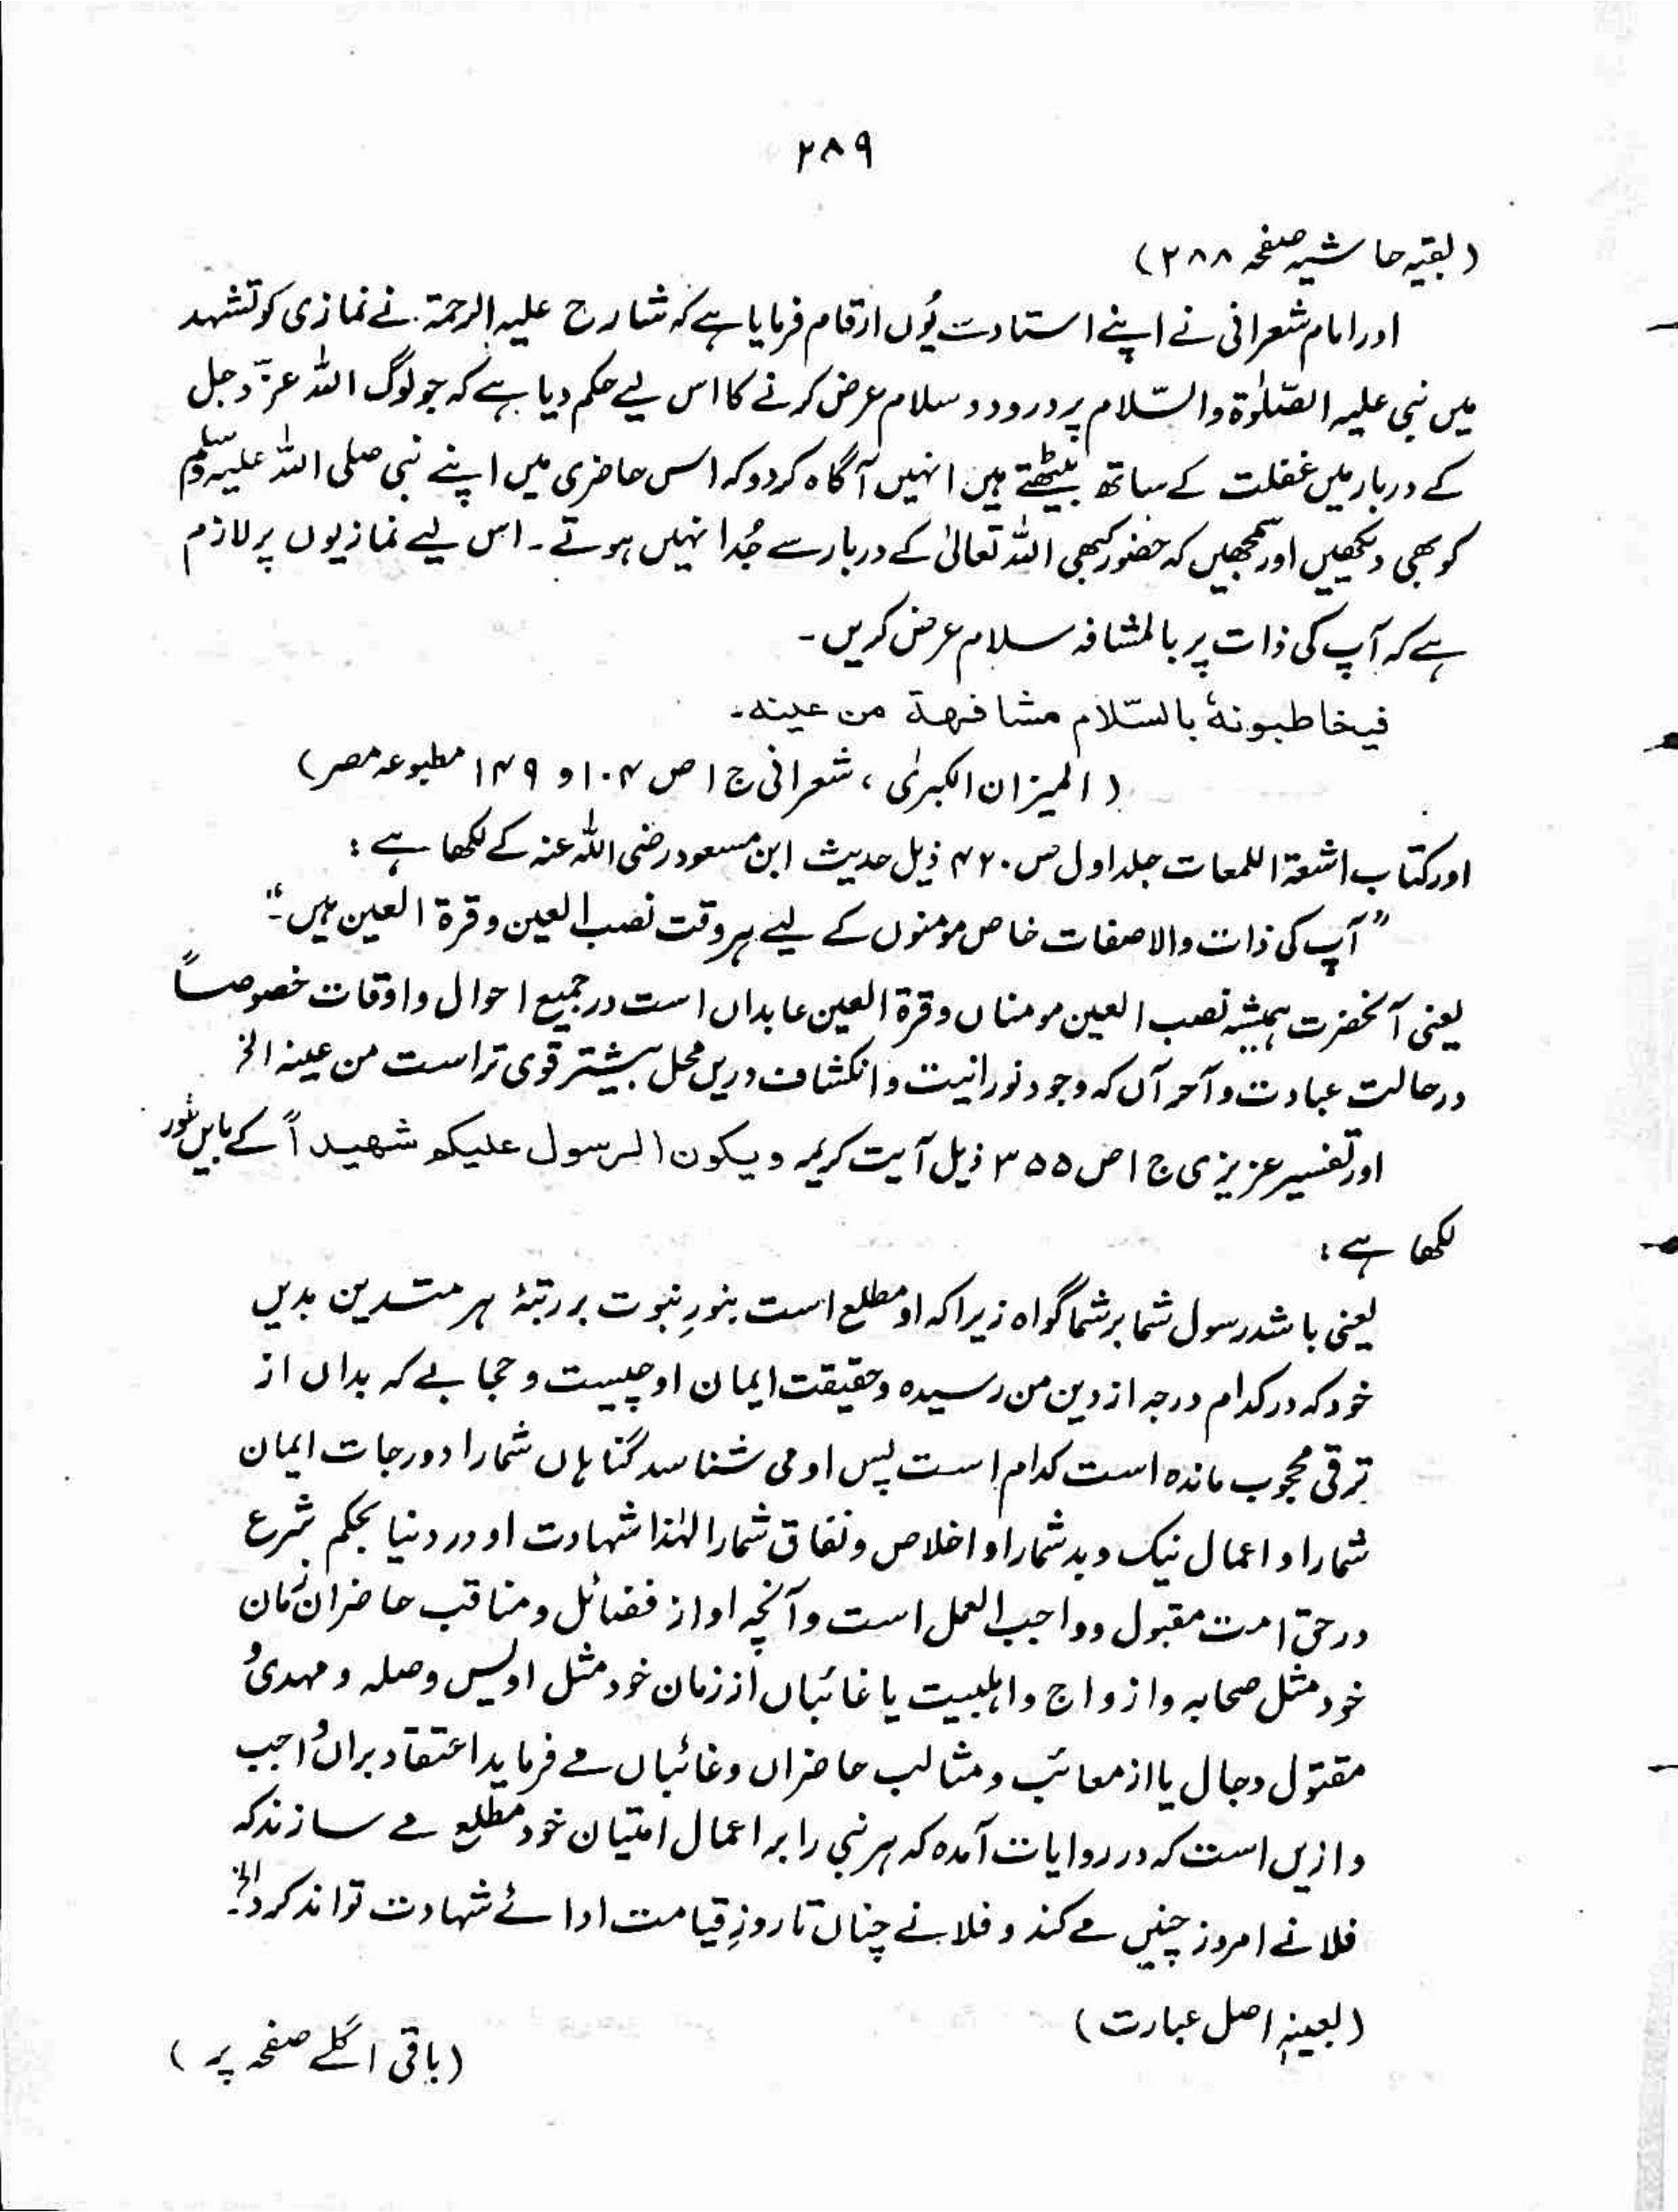 ۲۸۹
(بقیہ حاشیہ صفحہ ۲۸۸)
اور امام شعرانی نے اپنے استاد سے یُوں ارقام فرمایا ہے کہ شارح علیہ الرحمۃ نے نمازی کو تشہد
میں نبی علیہ الصّلوٰۃ والسّلام پر درود و سلام عرض کرنے کا اس لیے حکم دیا ہے کہ جو لوگ اللہ عزّوجل
کے دربار میں غفلت کے ساتھ بیٹھتے ہیں انہیں آگاہ کر دو کہ اس حاضری میں اپنے نبی صلی اللہ علیہ وسلم
کو بھی دیکھیں اور سمجھیں کہ حضور کبھی اللہ تعالیٰ کے دربار سے جُدا نہیں ہوتے۔ اس لیے نمازیوں پر لازم
ہے کہ آپ کی ذات پر بالمشافہ سلام عرض کریں۔
فیخاطبونہٗ بالسّلام مشافھۃ من عینہ۔
(المیزان الکبریٰ، شعرانی ج ۱ ص ۱۰۴ و ۱۴۹ مطبوعہ مصر)
اور کتاب اشعۃ اللمعات جلد اول ص ۴۲۰ ذیل حدیث ابن مسعود رضی اللہ عنہ کے لکھا ہے:
”آپ کی ذات والا صفات خاص مومنوں کے لیے ہر وقت نصب العین و قرۃ العین ہیں۔“
یعنی آنحضرت ہمیشہ نصب العین مومناں و قرۃ العین عابداں است در جمیع احوال و اوقات خصوصاً
در حالت عبادت و آخر آں کہ وجود نورانیت و انکشاف دریں محل بیشتر قوی تر است من عینہ الخ
اور تفسیر عزیزی ج ۱ ص ۳۵۵ ذیل آیت کریمہ ویکون الرسول علیکم شھیداً کے بایں طور
لکھا ہے:
یعنی باشد رسول شما بر شما گواہ زیرا کہ او مطلع است بنورِ نبوت بر رتبۂ ہر متدین بدیں
خود کہ در کدام درجہ از دین من رسیدہ و حقیقت ایمان او چیست و حجابے کہ بداں از
ترقی محجوب ماندہ است کدام است پس او می شناسد گناہاں شمارا و درجات ایمان
شمارا و اعمال نیک و بد شمارا و اخلاص و نفاق شمارا لہٰذا شہادت او در دنیا بحکم شرع
در حق امت مقبول و واجب العمل است و آنچہ او از فضائل و مناقب حاضران زمان
خود مثل صحابہ و ازواج و اہلبیت یا غائباں از زمان خود مثل اویس و صلہ و مہدی و
مقتول دجال یا از معائب و مثالب حاضراں و غائباں مے فرماید اعتقاد براں واجب
و ازیں است کہ در روایات آمدہ کہ ہر نبی را بر اعمال امتیان خود مطلع مے سازند کہ
فلانے امروز چنیں مے کند و فلانے چناں تا روزِ قیامت ادائے شہادت تواند کرد الخ۔
(بعینہٖ اصل عبارت)
(باقی اگلے صفحہ پر)